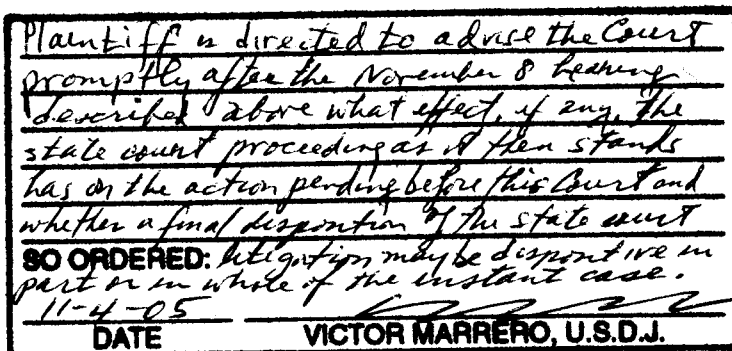 Plaintiff is directed to advise the Court
promptly after the November 8 hearing
described above what effect, if any, the
state court proceeding as it then stands
has on the action pending before this Court and
whether a final disposition of the state court
SO ORDERED: litigation may be dispositive in
part or in whole of the instant case.
11-4-05
DATE VICTOR MARRERO, U.S.D.J.